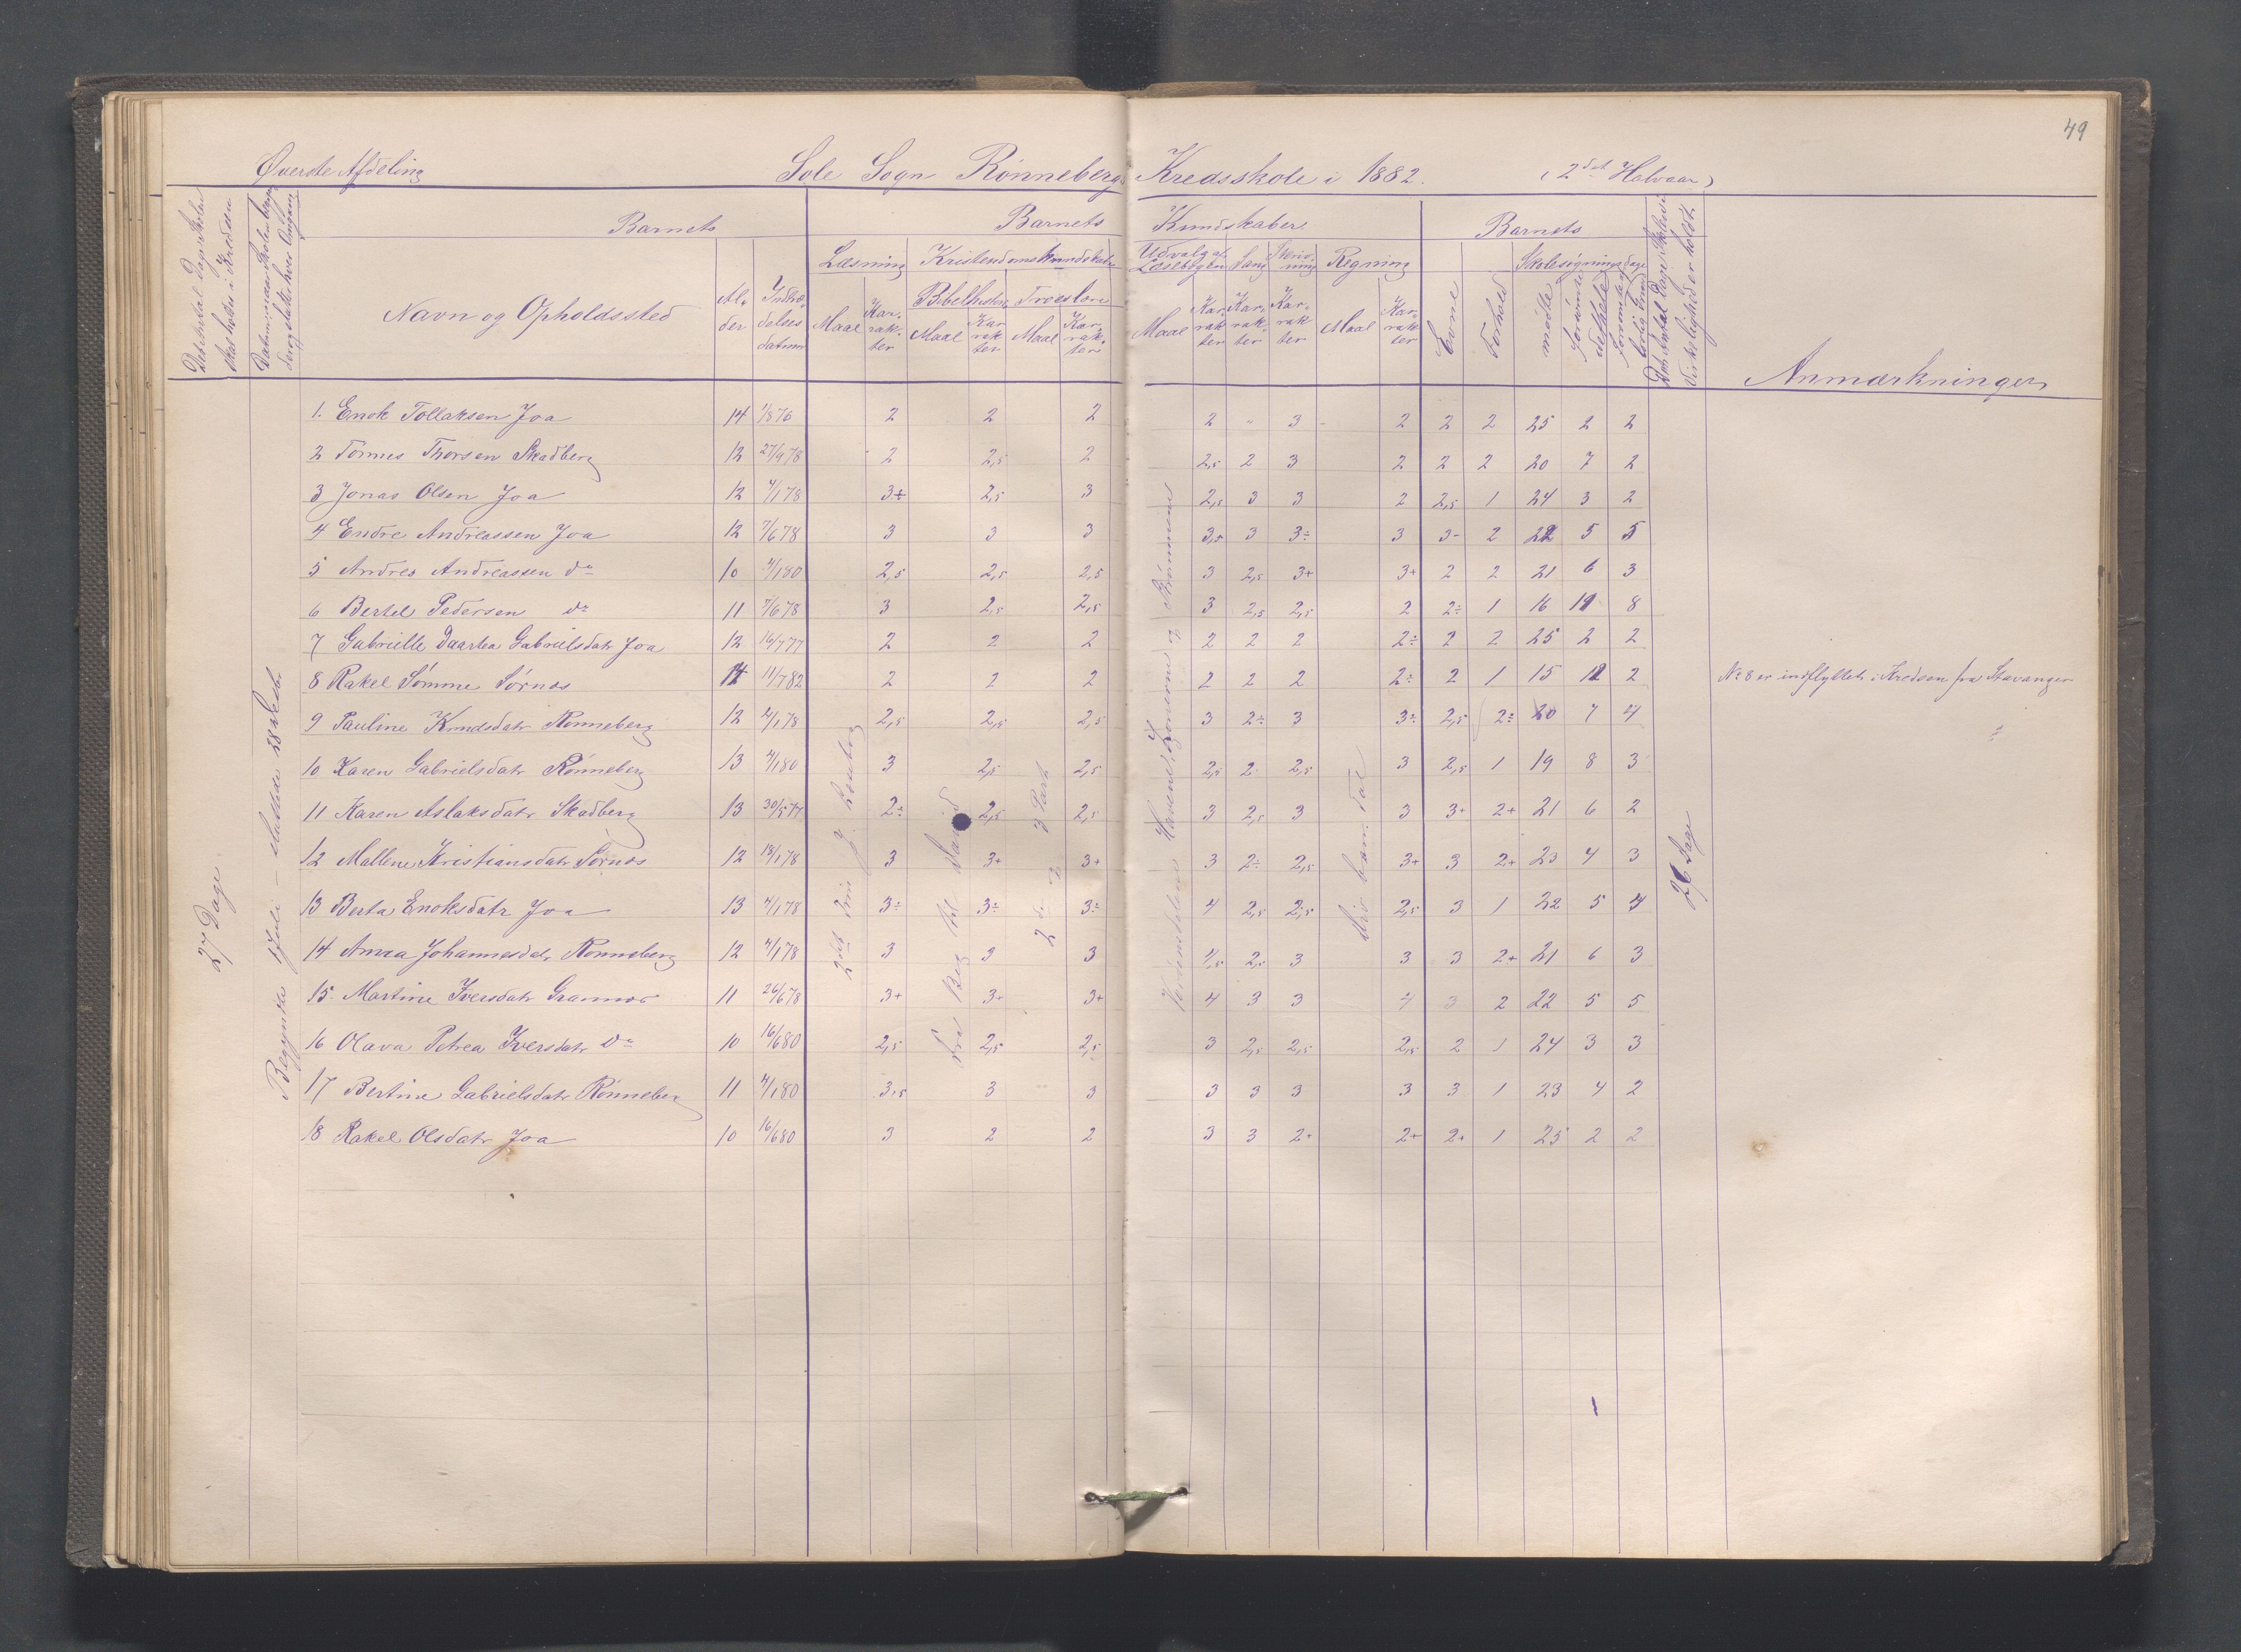 49
Øverste Afdeling Sole Sogn Rønneberg Kredsskole i 1882. (2det Halvaar)
Det Antal Dage Skolen skal holdes i Kredsen
Barnets Barnets Kundskaber Barnets
Læsning Kristendomskundskab Udvalg af Læsebogen Sang Skrivning Regning Skolesøgningsdage
Navn og Opholdssted Alder Indtrædelsesdatum Maal Karakter Bibelhistorie Maal Karakter Troeslære Maal Karakter Maal Karakter Karakter Karakter Maal Karakter Evne Forhold mødte forsømte det hele
Virkelighed er holdt.
Anmærkninger
27 Dage.
2 do og 3 Part
26 Dage
1. Enok Tollaksen Joa 14 1/8 76 2 2 2 2 " 3 2 2 2 25 2 2
2 Tønnes Thorsen Skadberg 12 27/9 78 2 2,5 2 2,5 2 3 2 2 2 20 7 2
3 Jonas Olsen Joa 12 4/1 78 3+ 2,5 3 2,5 3 3 2 2,5 1 24 3 2
4 Endre Andreassen Joa 12 7/6 78 3 3 3 3,5 3 3÷ 3 3- 2 22 5 5
5 Andres Andreassen do 10 4/1 80 2,5 2,5 2,5 3 2,5 3+ 3+ 2 2 21 6 3
6 Bertel Pedersen do 11 7/6 78 3 2,5 2,5 3 2,5 2,5 2 2÷ 1 16 11 8
7 Gabrielle Daartea Gabrielsdatr Joa 12 16/7 77 2 2 2 2 2 2 2÷ 2 2 25 2 2
8 Rakel Sømme Sørnes 14 11/7 82 2 2 2 2 2 2 2÷ 2 1 15 12 2 No 8 er indflyttet i Kredsen fra Stavanger
9 Pauline Knudsdatr Rønneberg 12 4/1 78 2,5 2,5 2,5 3 2÷ 3 3÷ 2,5 2÷ 20 7 4
10 Karen Gabrielsdatr Rønneberg 13 4/1 80 3 2,5 2,5 2,5 2 2,5 3 2,5 1 19 8 3
11 Karen Aslaksdatr Skadberg 13 30/5 77 2÷ 2,5 2,5 3 2,5 3 3 3+ 2+ 21 6 2
12 Mallene Kristiansdatr Sørnes 12 18/1 78 3 3+ 3+ 3 2÷ 2,5 3+ 3 2+ 23 4 3
13 Berta Enoksdatr Joa 13 4/1 78 3÷ 3÷ 3÷ 4 2,5 2,5 2,5 3 1 22 5 4
14 Anna Johannesdatr Rønneberg 12 4/1 78 3 3 3 4,5 2,5 3 3 3 2+ 21 6 3
15. Martine Iversdatr Grannes 11 26/6 78 3+ 3+ 3+ 4 3 3 4 3 2 22 5 5
16 Olava Petrea Iversdatr do 10 16/6 80 2,5 2,5 2,5 3 2,5 2,5 2,5 2 1 24 3 3
17 Bertine Gabrielsdatr Rønneberg 11 4/1 80 3,5 3 3 3 3 3 3 3 1 23 4 2
18 Rakel Olsdatr Joa 10 16/6 80 3 2 2 3 3 2+ 2+ 2+ 1 25 2 2